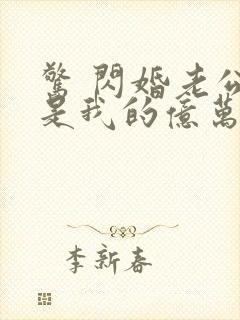 驚 閃婚老公
是我的億萬
李新春